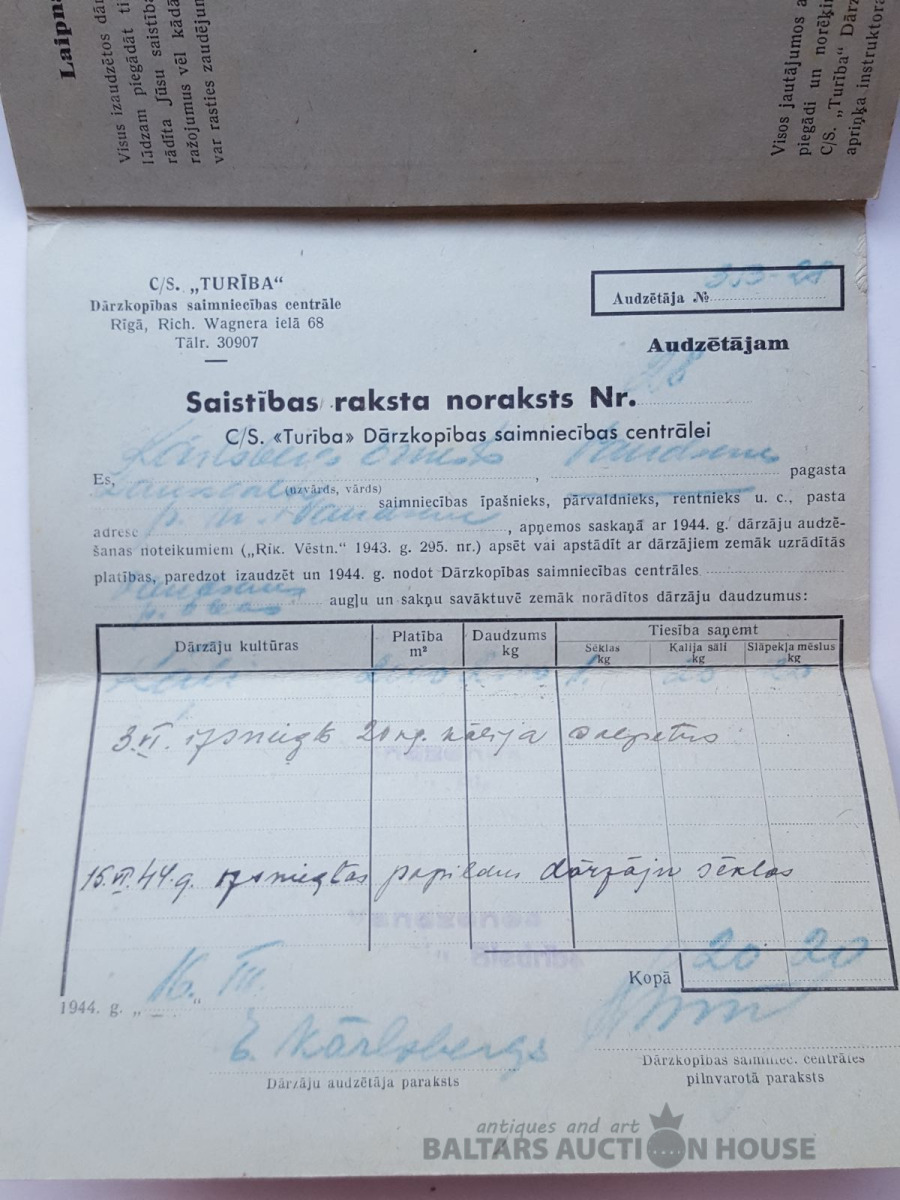 Laipn
Visus izaudzētos dār
lūdzam piegādāt ti
rādīta Jūsu saistība
ražojumus vēl kādā
var rasties zaudējum
Visos jautājumos a
piegādi un norēķin
C/S. „Turība" Dārz
apriņķa instruktora
C/S. „TURĪBA"
Dārzkopības saimniecības centrāle
Rīgā, Rich. Wagnera ielā 68
Tālr. 30907
Audzētāja № 313-28
Audzētājam
Saistības raksta noraksts Nr. 28
C/S. «Turība» Dārzkopības saimniecības centrālei
Es, Kārlsbergs Ernests, pagasta
(uzvārds, vārds) saimniecības īpašnieks, pārvaldnieks, rentnieks u. c., pasta
adrese p. n., apņemos saskaņā ar 1944. g. dārzāju audzē-
šanas noteikumiem („Rik. Vēstn." 1943. g. 295. nr.) apsēt vai apstādīt ar dārzājiem zemāk uzrādītās
platības, paredzot izaudzēt un 1944. g. nodot Dārzkopības saimniecības centrāles
augļu un sakņu savāktuvē zemāk norādītos dārzāju daudzumus:
Dārzāju kultūras Platība m² Daudzums kg Tiesība saņemt
Sēklas kg Kalija sāli kg Slāpekļa mēslus kg
20 20
3.VI. izsniegts 20 kg. kālija salpetris
15.VI.44.g. izsniegtas papildus dārzāju sēklas
Kopā 20 20
1944. g. „16. III."
E. Kārlsbergs
Dārzāju audzētāja paraksts
Dārzkopības saimniec. centrāles
pilnvarotā paraksts
antiques and art
BALTARS AUCTION HOUSE